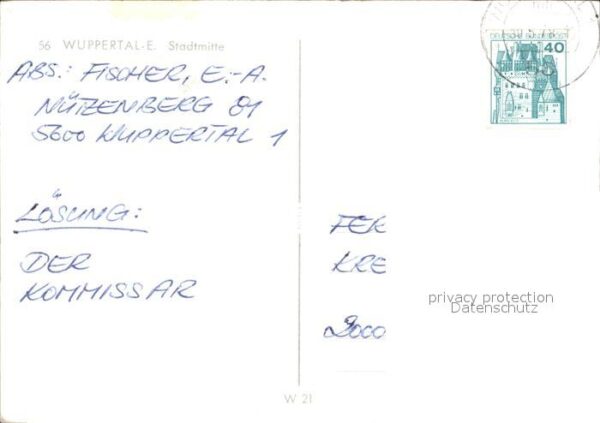 56 WUPPERTAL-E. Stadtmitte
ABS.: FISCHER, E.-A.
NÜTZENBERG 81
5600 WUPPERTAL 1
LÖSUNG:
DER
KOMMISSAR
DEUTSCHE BUNDESPOST
40
FER
KRE
2000
privacy protection
Datenschutz
W 21